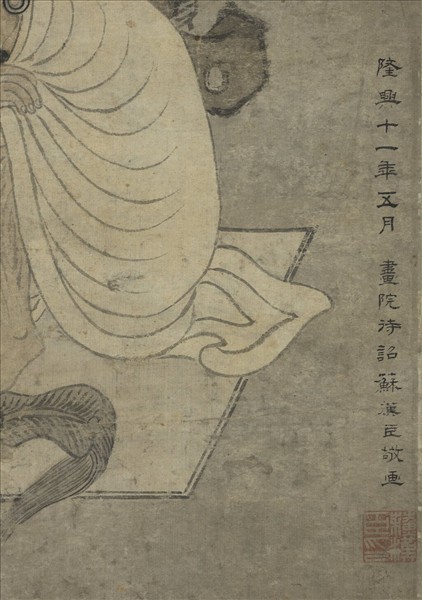 隆興十一年五月畫院待詔蘇漢臣敬画